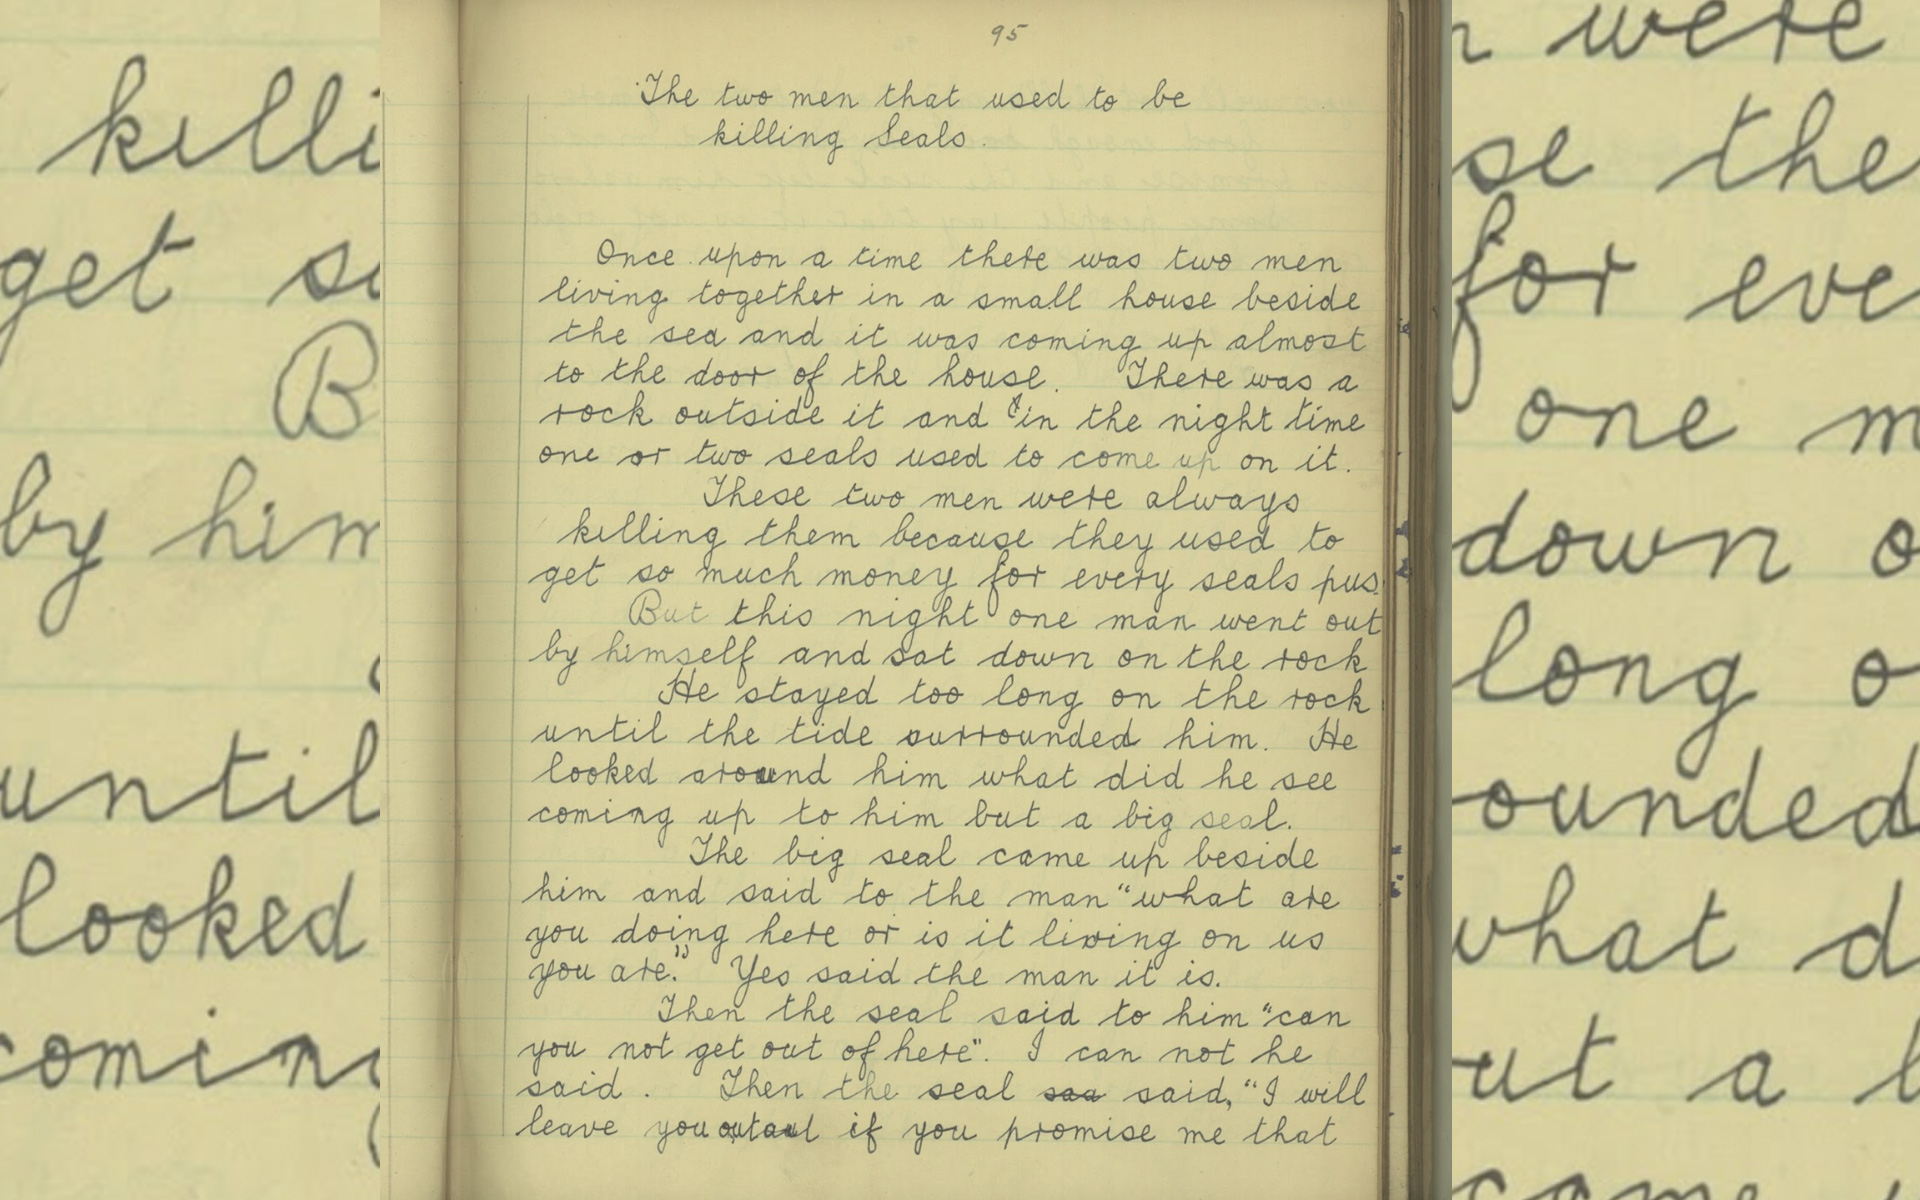 95
The two men that used to be
killing Seals.
Once upon a time there was two men
living together in a small house beside
the sea and it was coming up almost
to the door of the house. There was a
rock outside it and in the night time
one or two seals used to come up on it.
These two men were always
killing them because they used to
get so much money for every seals pus.
But this night one man went out
by himself and sat down on the rock
He stayed too long on the rock
until the tide surrounded him. He
looked around him what did he see
coming up to him but a big seal.
The big seal came up beside
him and said to the man "what are
you doing here or is it living on us
you are." Yes said the man it is.
Then the seal said to him "can
you not get out of here". I can not he
said. Then the seal saa said, "I will
leave you if you promise me that